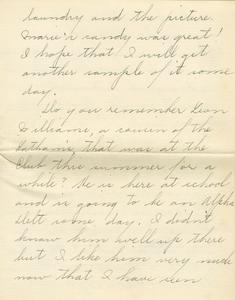 laundry and the picture.
Marie's candy was great!
I hope that I will get
another sample of it some
day.
Do you remember Gion
Williams, a cousin of the
Latham's, that was at the
Club this summer for a
while? He is here at school
and is going to be an Alpha
Delt some day. I didn't
know him well up there
but I like him very much
now that I have seen